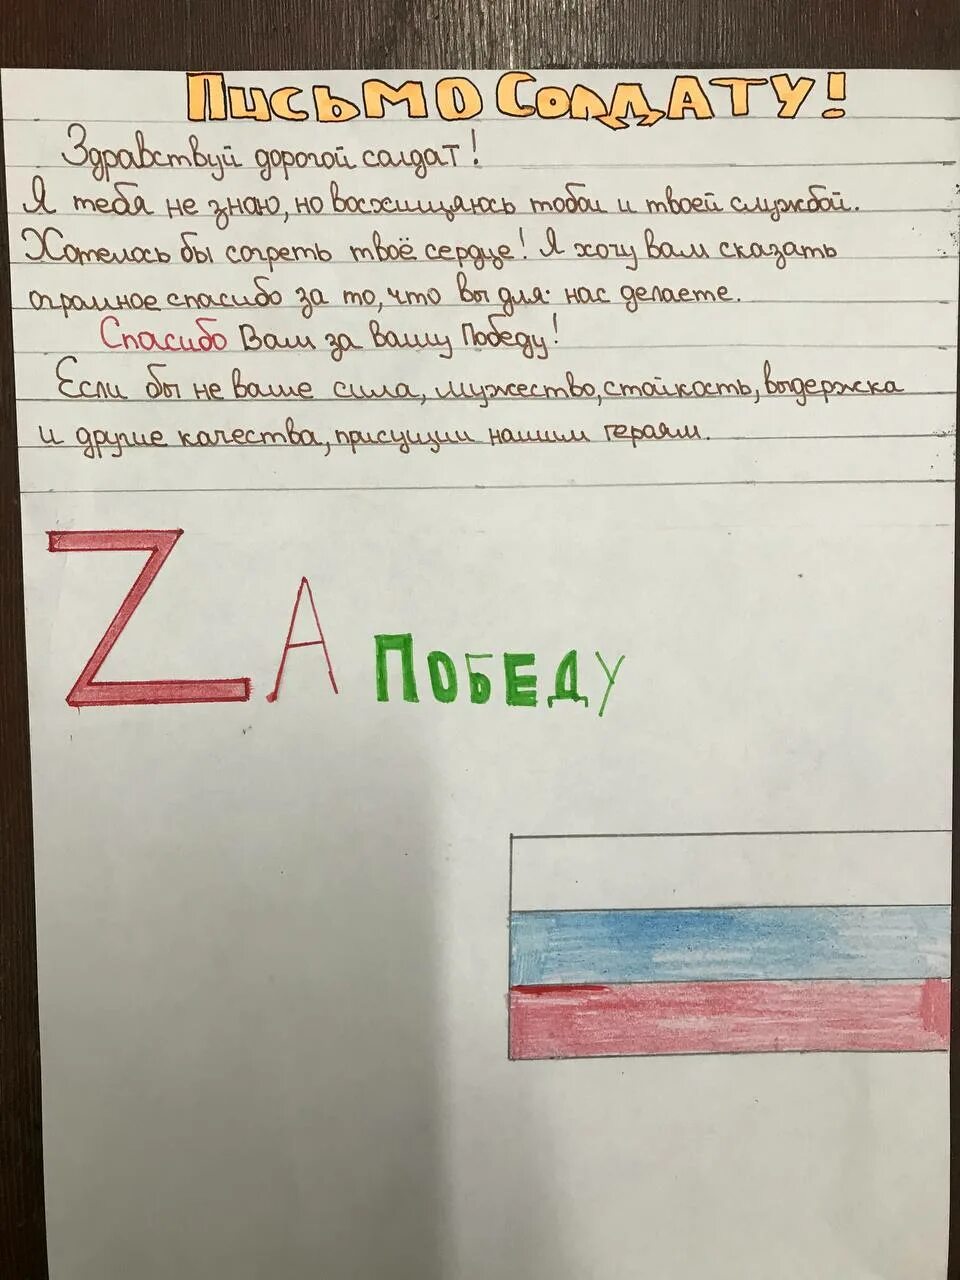 Письмо Солдату!
Здравствуй дорогой салдат!
Я тебя не знаю, но восхищаюсь тобои и твоей службой.
Хотелось бы согреть твоё сердце! Я хочу вам сказать
огромное спасибо за то, что вы для нас делаете.
Спасибо Вам за вашу Победу!
Если бы не ваше сила, мужество, стойкость, выдержка
и другие качества, присущии нашим гераям.
ZA Победу